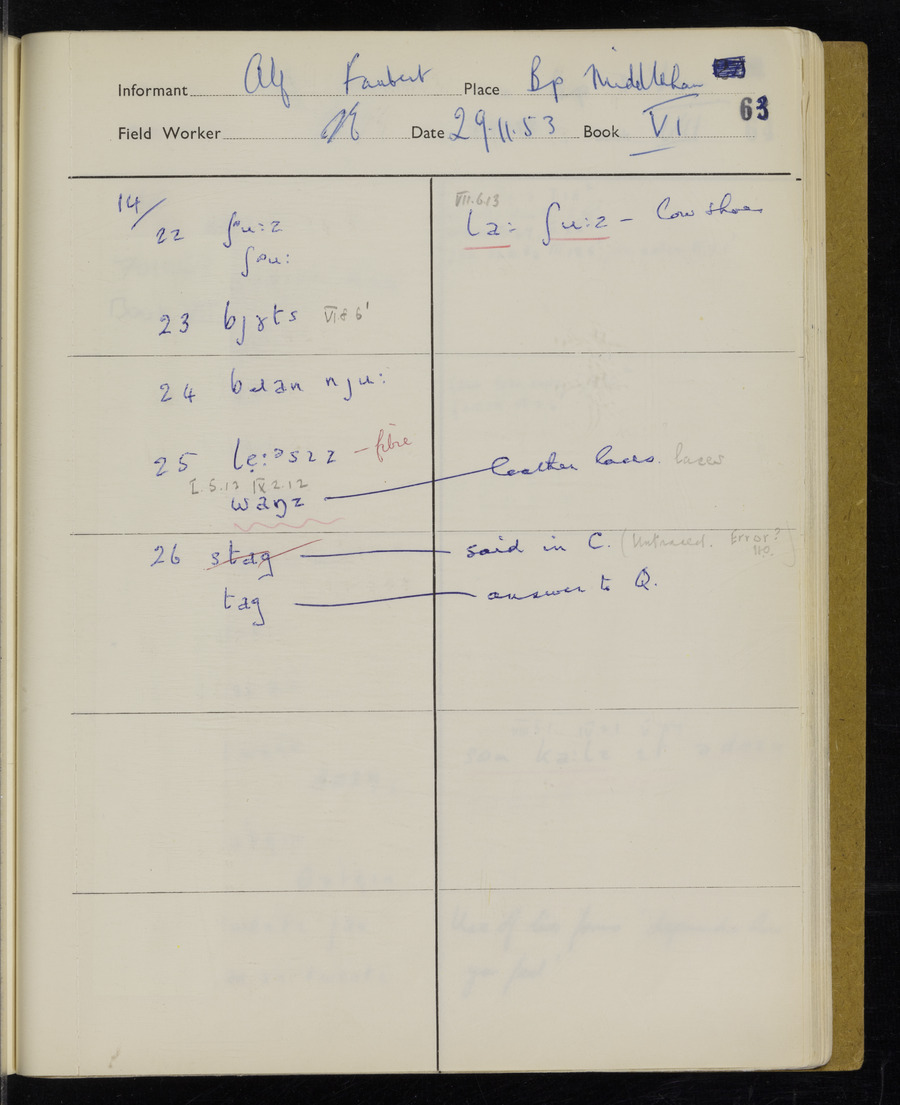 Informant Alf Faubert Place Bp Middleham
63
Field Worker Date 29.11.53 Book VI
14/
22 ʃᵊu:z
ʃᵊu:
VII.6.13
la: ʃu:z – low shoes
23 bɟɤts VI 8 6'
24 bɹan nju:
25 lẹ:ᵊsɪz – fibre
I.5.12 IX 2.12
waŋz
leather laces. laces
26 stag said in C. (Untraced. Error?
tag answer to Q.